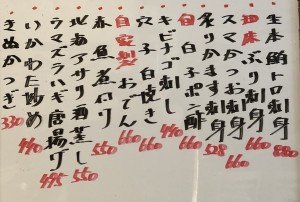 生本鮪トロ刺身 880
ぶり刺身 660
スマかつお刺身 660
炙りかます刺身 528
白子ポン酢 660
キビナゴ刺し 440
穴子白焼き 660
自家製 おでん 660
魚煮付 550
北海アサリ酒蒸し 550
ウマズラハギ唐揚げ 495
いかわた炒め 440
きぬかつぎ 330